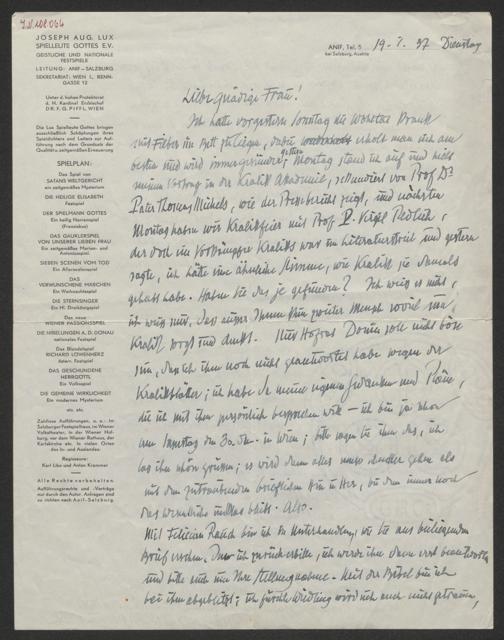 I.N. 198.064
JOSEPH AUG. LUX
SPIELLEUTE GOTTES E.V.
GEISTLICHE UND NATIONALE
FESTSPIELE
LEITUNG: ANIF – SALZBURG
SEKRETARIAT: WIEN I., RENN-
GASSE 12
Unter d. hohen Protektorat
d. H. Kardinal Erzbischof
DR. F. G. PIFFL, WIEN
Die Lux Spielleute Gottes bringen
ausschließlich Schöpfungen ihres
Spieldichters und Leiters zur Auf-
führung nach dem Grundsatz der
Qualität zeitgemäßen Erneuerung
SPIELPLAN:
Das Spiel von
SATANS WELTGERICHT
ein zeitgemäßes Mysterium
DIE HEILIGE ELISABETH
Festspiel
DER SPIELMANN GOTTES
Ein heilig Narrenspiel
(Franziskus)
DAS GAUKLERSPIEL
VON UNSERER LIEBEN FRAU
Ein zeitgemäßes Marien- und
Antoniusspiel
SIEBEN SCENEN VOM TOD
Ein Allerseelenspiel
DAS
VERWUNSCHENE MÄRCHEN
Ein Weihnachtsspiel
DIE STERNSINGER
Ein Hl. Dreikönigsspiel
Das neue
WIENER PASSIONSSPIEL
DIE NIBELUNGEN A. D. DONAU
nationales Festspiel
Das Blondelspiel
RICHARD LÖWENHERZ
österr. Festspiel
DAS GESCHUNDENE
HERRGOTTL
Ein Volksspiel
DIE GEMEINE WIRKLICHKEIT
Ein modernes Mysterium
etc. etc.
Zahllose Aufführungen, u. a. im
Salzburger Festspielhaus, im Wiener
Volkstheater, in der Wiener Hof-
burg, vor dem Wiener Rathaus, der
Karlskirche etc. In vielen Orten
des In- und Auslandes.
Regisseure:
Karl Like und Anton Krammer
Alle Rechte vorbehalten
Aufführungsrechte und -Verträge
nur durch den Autor. Anfragen sind
zu richten nach Anif-Salzburg.
ANIF, Tel. 5
bei Salzburg, Austria
19. 37 Dienstag
Liebe gnädige Frau!
Ich hatte vorgestern Sonntag die Wohltat krank
mit Fieber im Bett zu liegen, dabei erholt man sich am
besten und wird immer gesünder; gestern Montag stand ich auf und hielt
meinen Vortrag in der Kralik Akademie, sekundiert von Prof Dr
Pater Thomas Michels, wie der Pressebericht zeigt, und nächsten
Montag haben wir Kralikfeier mit Prof P. Redlich,
der doch ein Vorkämpfer Kraliks war im Literaturstreit und gestern
sagte, ich hätte eine ähnliche Stimme, wie Kralik sie ehemals
gehabt habe. Haben Sie das je gefunden? Ich weiß es nicht,
ich weiß nur, dass außer Ihnen kein zweiter Mensch soviel von
Kralik sagt und denkt. Nur Hofrat Donin soll nicht böse
sein, dass ich ihm noch nicht geantwortet habe wegen der
Kralikblätter; ich habe da meine eigenen Gedanken und Pläne,
die ich mit ihm persönlich besprechen will – ich bin ja schon
am Samstag den 30. in Wien; bitte sagen Sie ihm das, ich
lass ihn schön grüßen; es wird dann alles gehen als
mit dem zeitraubenden brieflichen Hin u Her, bei dem immer noch
das Wesentliche bleibt. Also.
Mit Felician Rauch bin ich in Unterhandlung, wie Sie aus beiliegendem
Brief ersehen. Den ich zurückerbitte, ich werde ihn dann erst beantworten
und bitte auch um Ihre Stellungnahme. Mit der Bibel bin ich
bei ihm abgeblitzt; ich fürchte wird sich auch nicht getrauen,